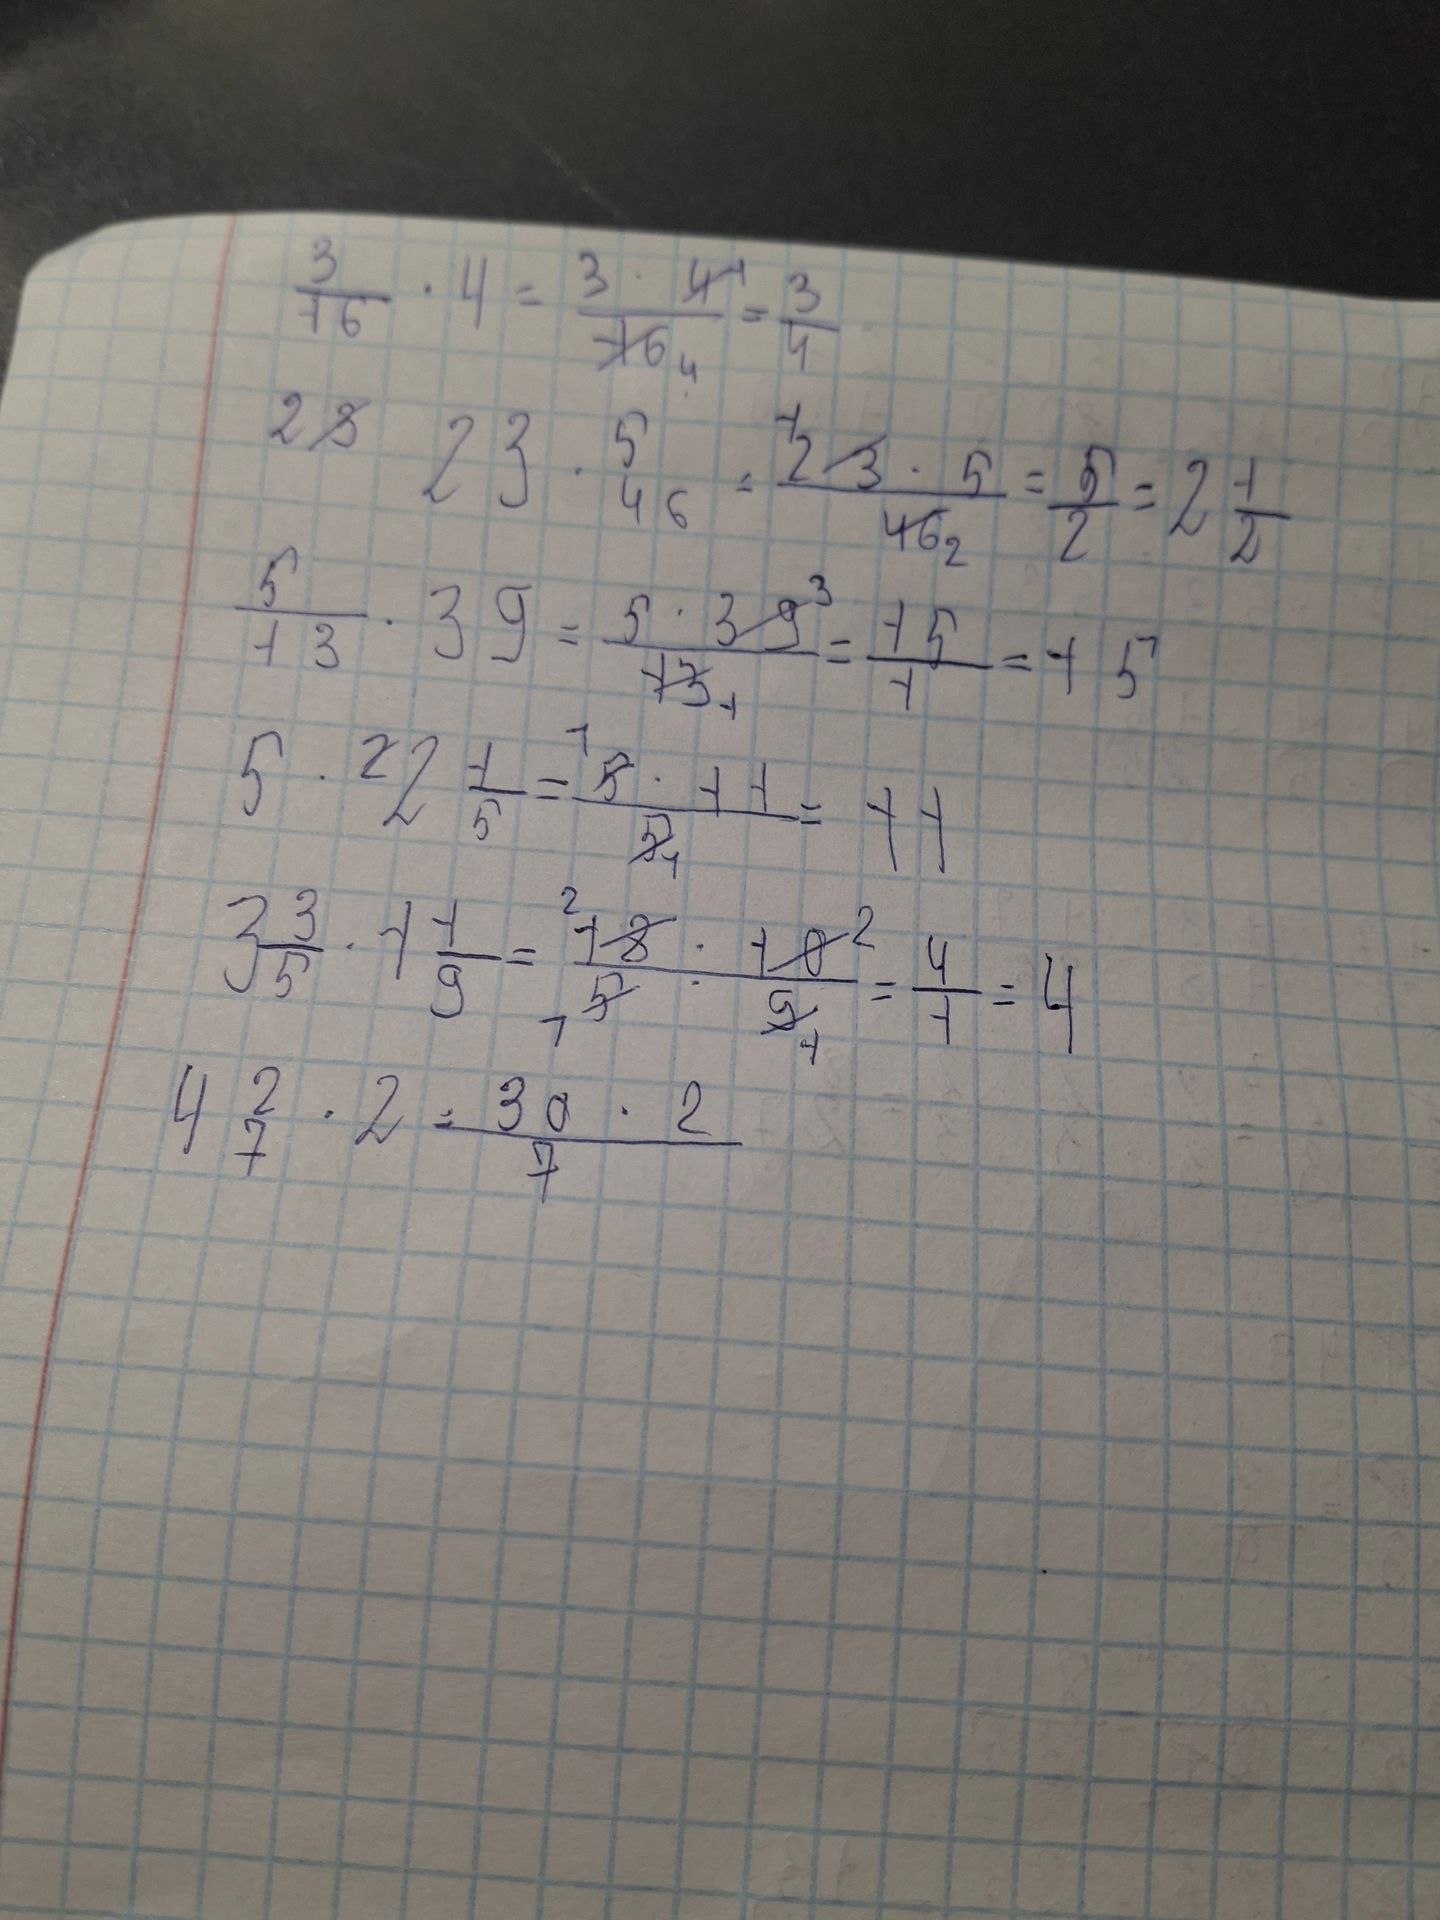 3/16 · 4 = 3 · 4 1 / 16 4 = 3/4
28 23 · 5 46 = 1 23 · 5 / 46 2 = 5/2 = 2 1/2
5/13 · 39 = 5 · 39 3 / 13 1 = 15/1 = 15
5 · 22 1/5 = 1 5 · 11 / 5 1 = 11
3 3/5 · 11 1/9 = 2 18 · 10 2 / 1 5 · 9 1 = 4/1 = 4
4 2 7 · 2 = 30 · 2 / 7